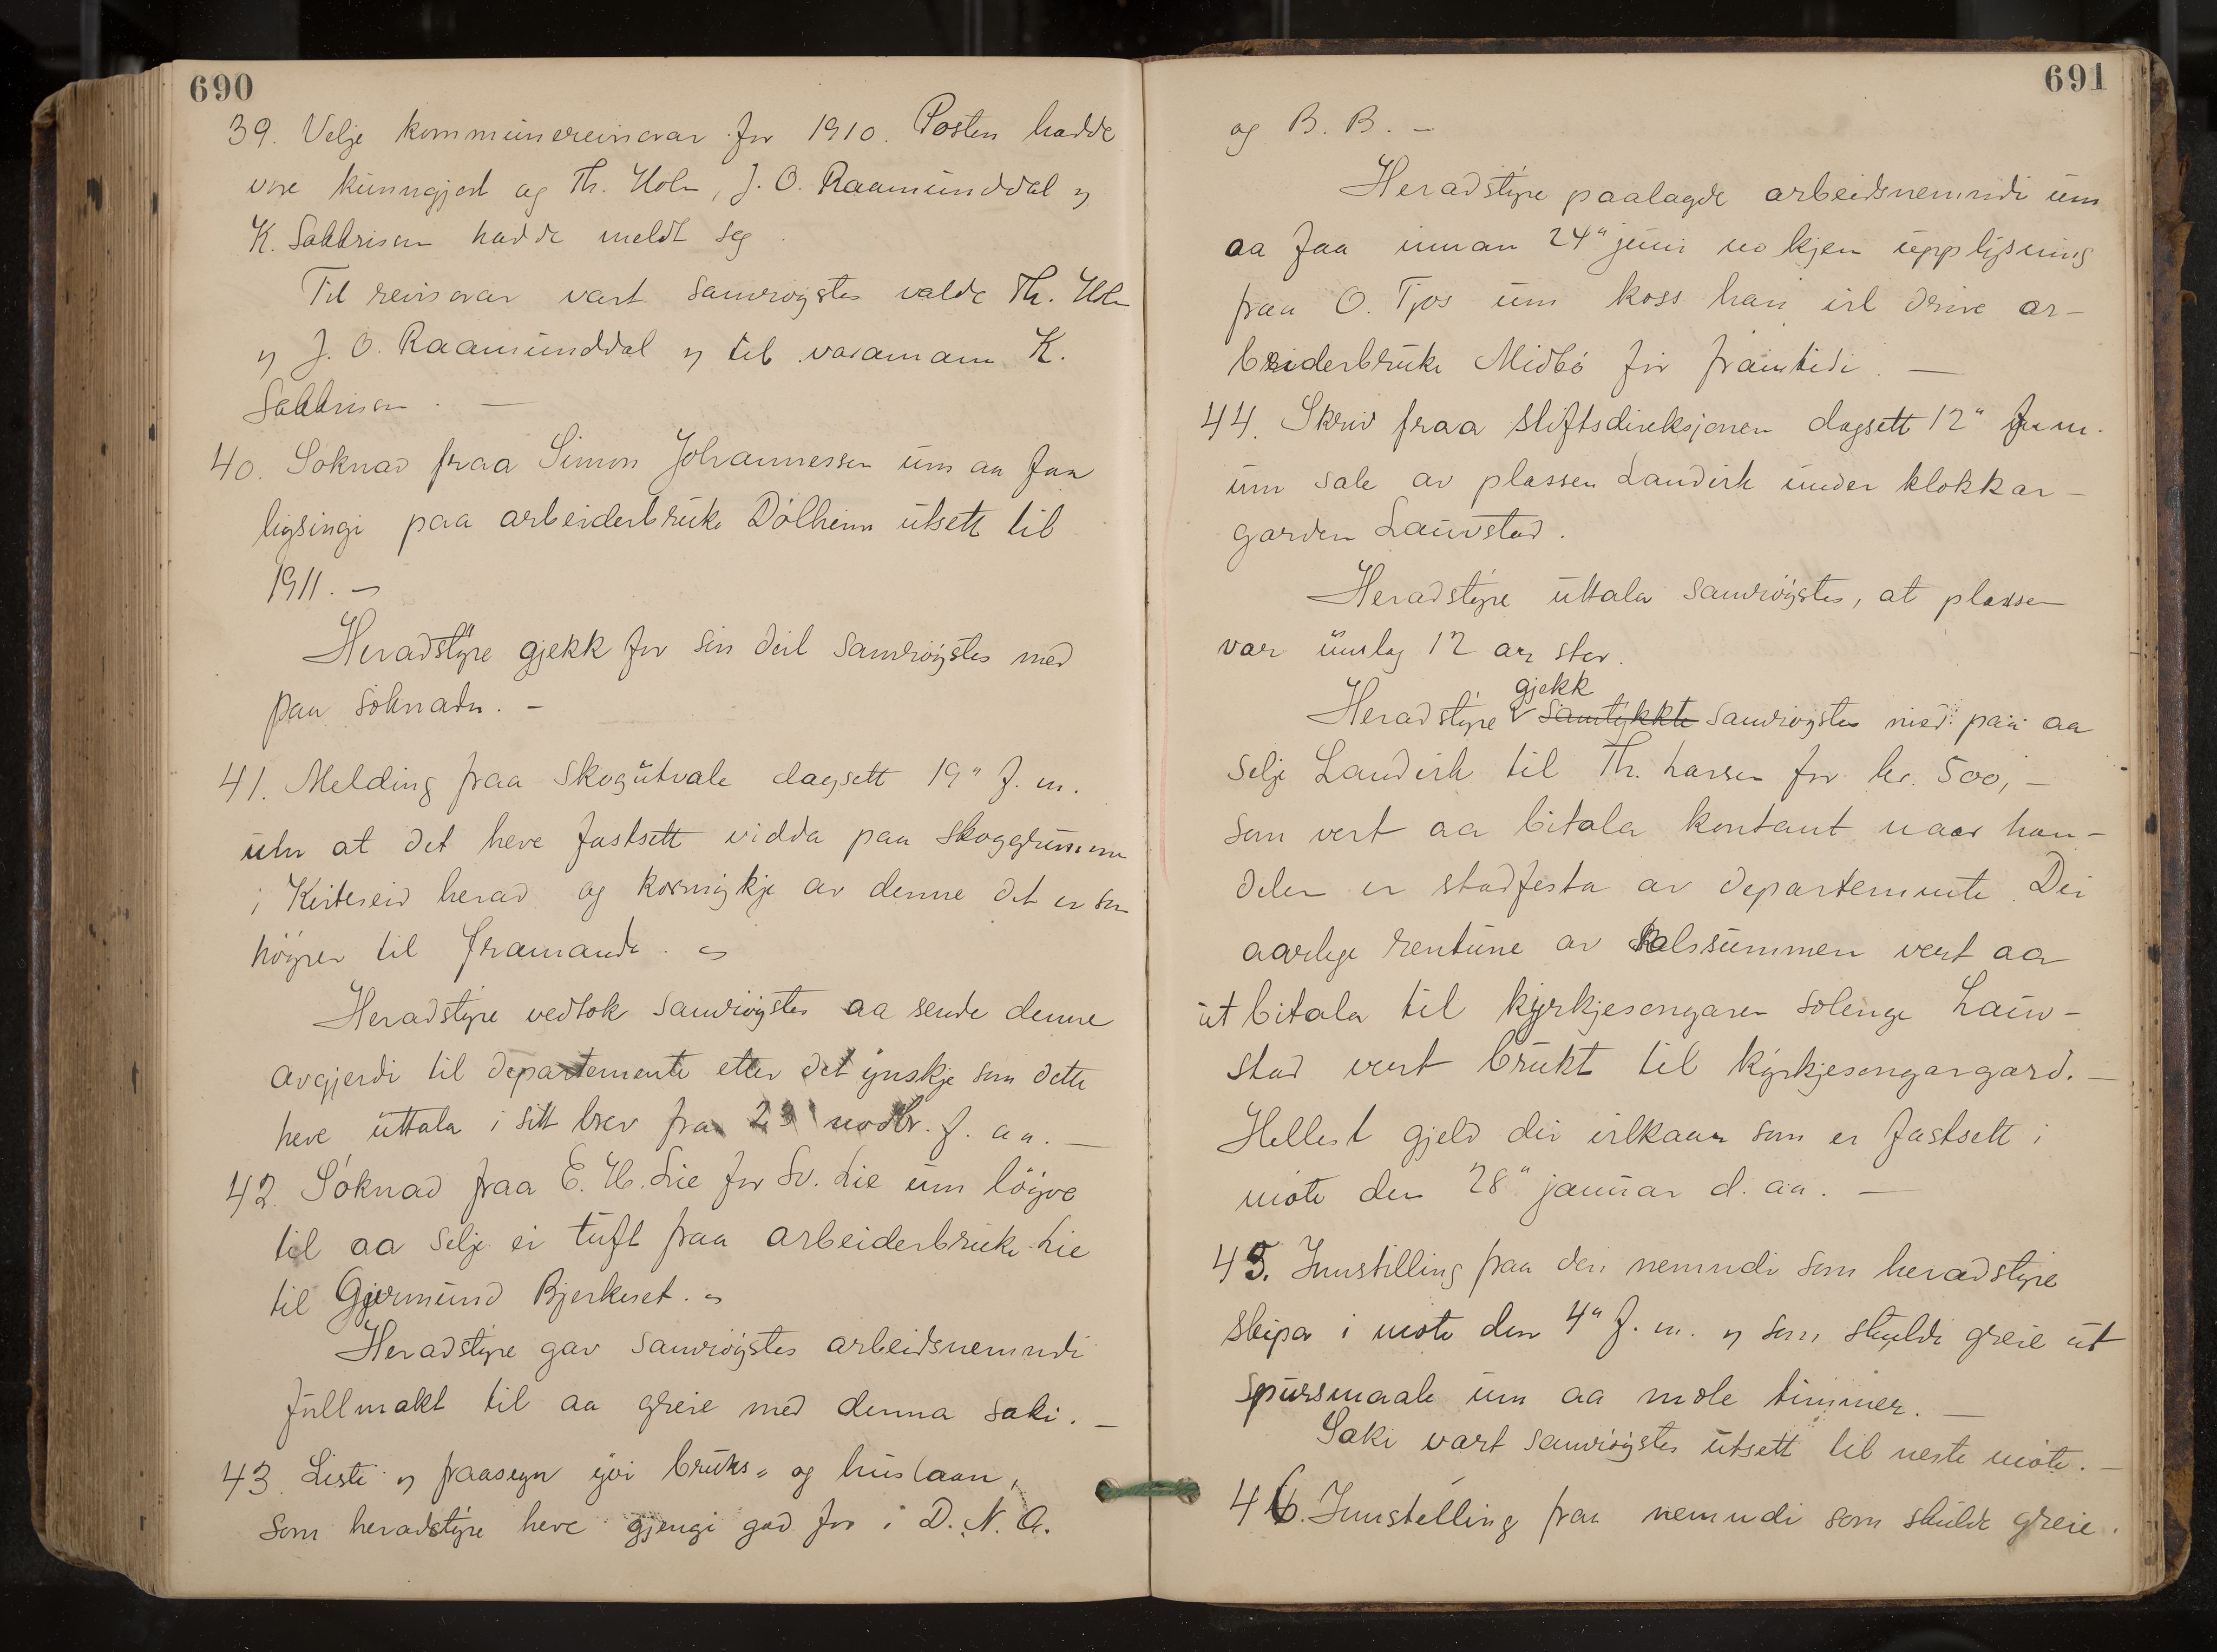 690
39. Velje kommunerevisorar for 1910. Posten hadde
vore kunngjort og Th. Holm, J. O. Raamunddal og
K. Sakkrisen hadde meldt seg.
Til revisorar vart samröystes valde Th. Holm
og J. O. Raamunddal og til varamann K.
Sakkrisen. —
40. Söknad fraa Simon Johannessen um aa faa
lysingi paa arbeiderbruke Dölheim utsett til
1911. —
Heradstyre gjekk for sin deil samröystes med
paa söknadn. —
41. Melding fraa skogutvale dagsett 19" f. m.
um at det heve fastsett vidda paa skoggrunnen
i Kviteseid herad og kormykje av denne det er som
höyrer til framande. —
Heradstyre vedtok samröystes aa sende denne
avgjerdi til departemente etter det ynskje som dette
heve uttala i sitt brev fra 23 novbr. f. aa. —
42. Söknad fraa E. H. Lie for Sv. Lie um löyve
til aa selje ei tuft fraa arbeiderbruke Lie
til Gjermund Bjerkeset. —
Heradstyre gav samröystes arbeidsnemndi
fullmakt til aa greie med denna saki. —
43. Liste og fraasegn yvi bruks- og huslaan,
som heradstyre heve gjengi god for i D. N. A.
691
og B. B. —
Heradstyre paalagde arbeidsnemndi um
aa faa innan 24" juni nokjen upplysning
fraa O. Tjos um koss han vil drive ar-
beiderbruke Midbö for framtidi. —
44. Skriv fraa stiftsdireksjonen dagsett 12" f. m.
um sale av plassen Landvik under klokkar-
garden Lauvstad.
Heradstyre uttala samröystes, at plassen
var umlag 12 ar stor.
gjekk
Heradstyre samtykkte samröystes med paa aa
selje Landvik til Th. Larsen for kr. 500,—
som vert aa bitala kontant naar han-
delen er stadfesta av departemente. Dei
aarlege rentune av salssummen vert aa
utbitala til kyrkjesongaren solenge Lauv-
stad vert brukt til kyrkjesongargard. —
Hellest gjeld dei vilkaar som er fastsett i
möte den 28" januar d. aa. —
45. Innstilling fraa den nemndi som heradstyre
skipa i möte den 4" f. m. og som skulde greie ut
spursmaale um aa mole timmer. —
Saki vart samröystes utsett til neste möte. —
46. Innstelling fraa nemndi som skulde greie